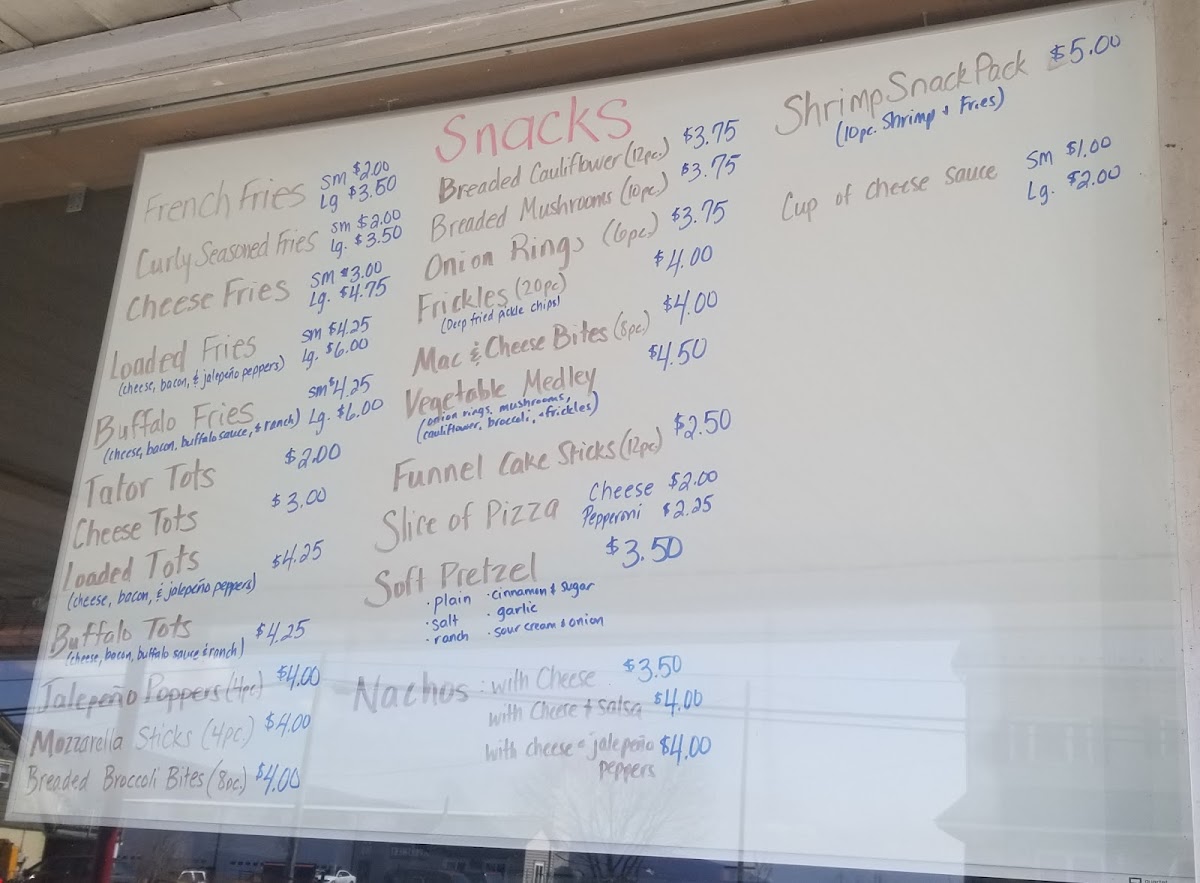 Snacks
French Fries
Sm $2.00
Lg $3.50
Curly Seasoned Fries
Sm $2.00
Lg. $3.50
Cheese Fries
Sm $3.00
Lg. $4.75
Loaded Fries
(cheese, bacon, & jalepeño peppers)
Sm $4.25
Lg. $6.00
Buffalo Fries
(cheese, bacon, buffalo sauce, & ranch)
Sm $4.25
Lg. $6.00
Tator Tots $2.00
Cheese Tots $3.00
Loaded Tots $4.25
(cheese, bacon, & jalepeño peppers)
Buffalo Tots $4.25
(cheese, bacon, buffalo sauce & ranch)
Jalepeño Poppers (4pc) $4.00
Mozzarella Sticks (4pc.) $4.00
Breaded Broccoli Bites (8pc.) $4.00
Breaded Cauliflower (12pc.) $3.75
Breaded Mushrooms (10pc.) $3.75
Onion Rings (6pc.) $3.75
Frickles (20pc) $4.00
(Deep fried pickle chips)
Mac & Cheese Bites (8pc.) $4.00
Vegetable Medley $4.50
(onion rings, mushrooms,
cauliflower, broccoli, & frickles)
Funnel Cake Sticks (12pc) $2.50
Slice of Pizza
Cheese $2.00
Pepperoni $2.25
Soft Pretzel $3.50
· plain · cinnamon & sugar
· salt · garlic
· ranch · sour cream & onion
Nachos: with Cheese $3.50
with Cheese & Salsa $4.00
with cheese & jalepeño $4.00
peppers
Shrimp Snack Pack $5.00
(10pc. Shrimp & Fries)
Cup of cheese sauce
Sm $1.00
Lg. $2.00